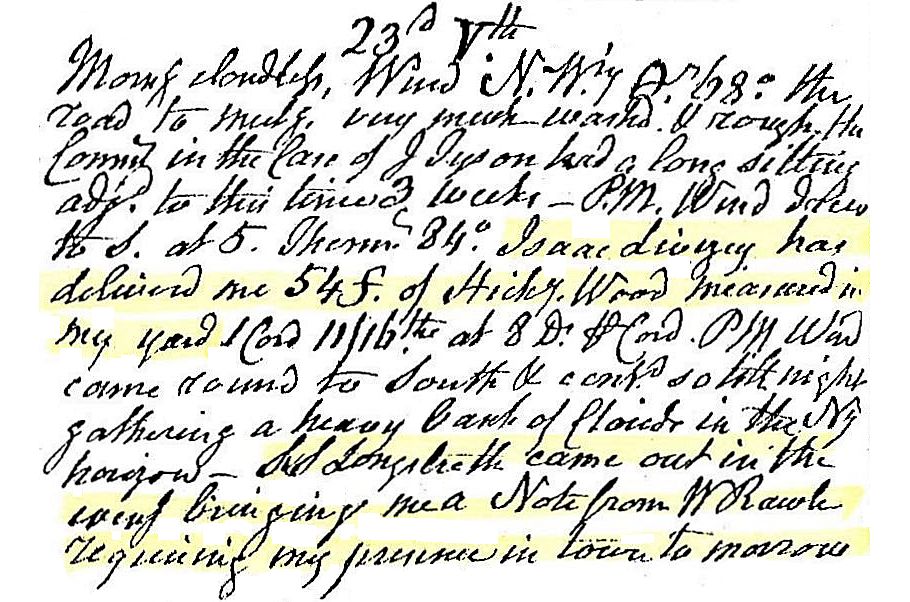 23d Vth
Morng cloudless, Wind N.Wly Th. 68° the
road to mulg. very much washd. & rough. the
Committ in the Case of J Tyson had a long sitting
adjd. to this time 3 weeks – P.M. Wind drew
to S. at 5. Thermr. 84°. Isaac Livezey has
deliverd me 54 f. of Hicky. Wood measured in
my yard 1 Cord 11/16ths at 8 Ds. ⅌ Cord. P M Wind
came round to South & contd. so till night
gathering a heavy bank of Clouds in the Ny
horizon – Longstreth came out in the
eveng bringing me a Note from W Rawle
requiring my presence in town to morrow